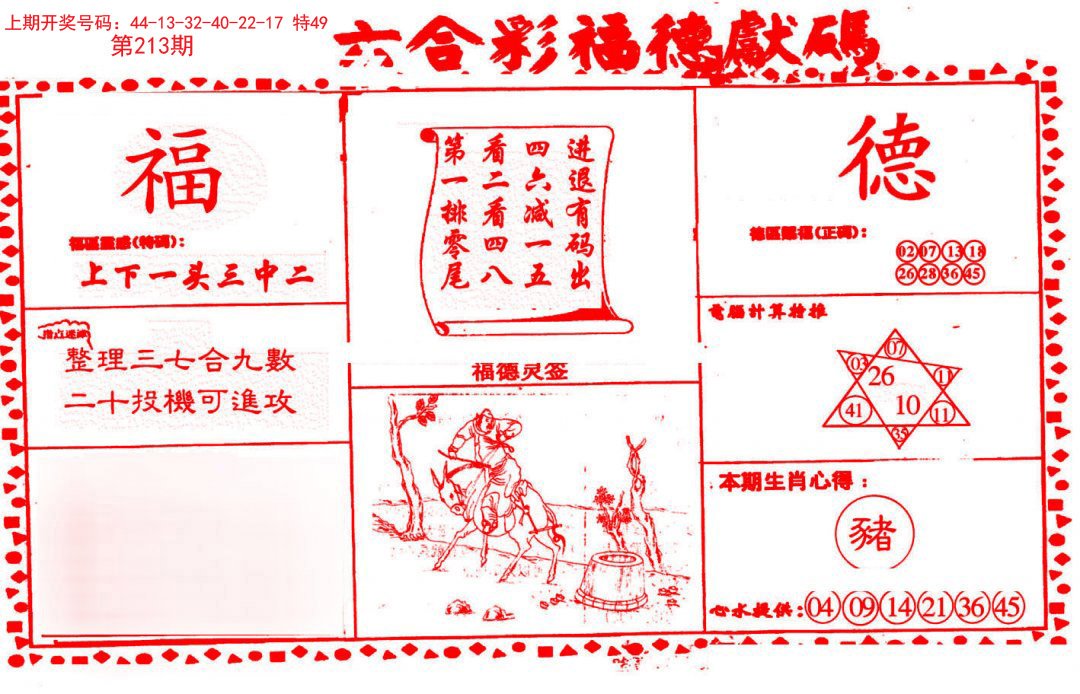 上期开奖号码：44-13-32-40-22-17 特49
第213期
六合彩福德獻碼
福
福區靈感(特碼)：
上下一头三中二
整理三七合九數
二十投機可進攻
进退有码出
四六减一五
看二看四八
第一排零尾
福德灵签
德
德區賜福(正碼)：
02 07 13 18
26 28 36 45
電腦計算特推
07
03 26 1
41 10 11
35
本期生肖心得：
豬
心水提供：04 09 14 21 36 45